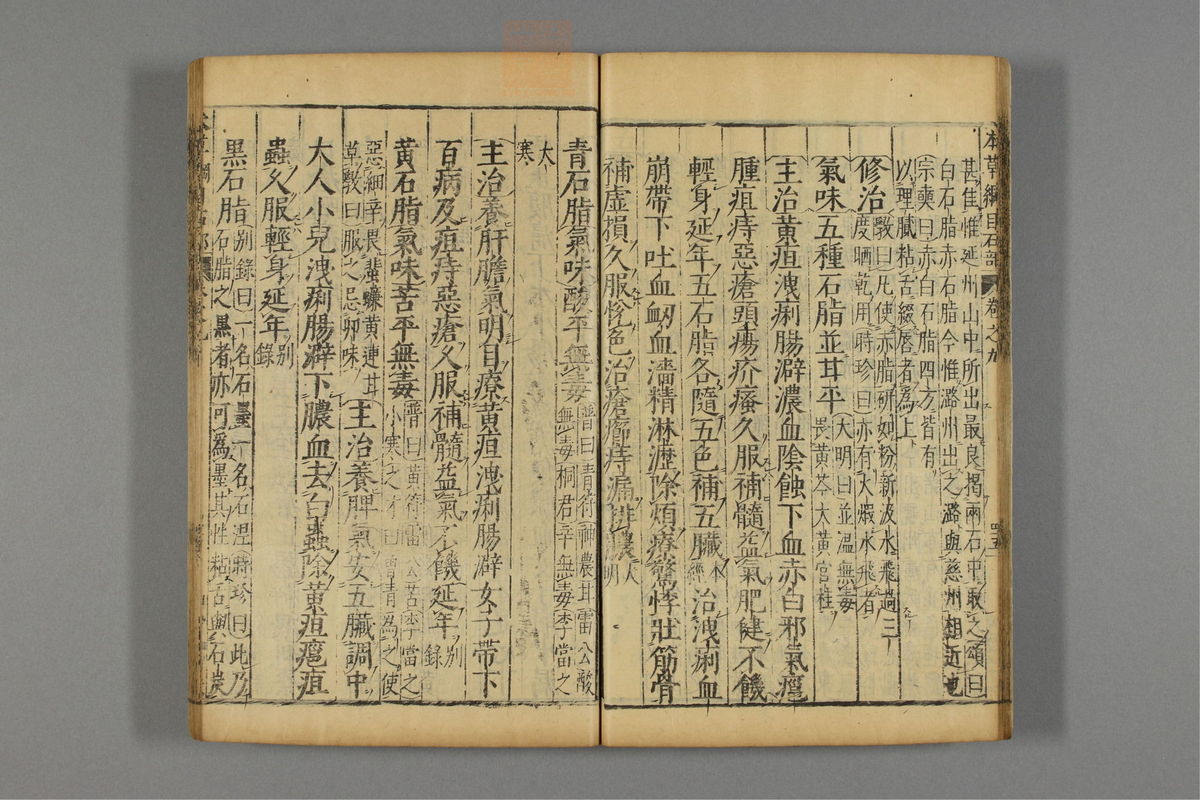 本草綱目石部 卷之九
甚佳惟延州山中所出最良揭兩石中取之頌曰
白石脂赤石脂今惟潞州出之潞與慈州相近也
宗奭曰赤白石脂四方皆有
以理膩粘舌綴唇者為上
修治 斆曰凡使赤脂研如粉新汲水飛過三
度晒乾用時珍曰亦有火煆水飛者
氣味五種石脂並甘平 大明曰並溫無毒
畏黃芩大黃官桂
主治黃疸洩痢腸澼濃血陰蝕下血赤白邪氣癰
腫疽痔惡瘡頭瘍疥瘙久服補髓益氣肥健不饑
輕身延年五石脂各隨五色補五臟 本經 治洩痢血
崩帶下吐血衄血濇精淋瀝除煩療驚悸壯筋骨
補虛損久服悅色治瘡癤痔漏排膿 大明
青石脂氣味酸平無毒 普曰青符神農甘雷公酸
無毒桐君辛無毒李當之
大
寒
主治養肝膽氣明目療黃疸洩痢腸澼女子帶下
百病及疽痔惡瘡久服補髓益氣不饑延年 別錄
黃石脂氣味苦平無毒 普曰黃符雷公苦李當之
小寒之才曰曾青為之使
惡細辛畏蜚蠊黃連甘
草斆曰服之忌卵味
主治養脾氣安五臟調中
大人小兒洩痢腸澼下膿血去白蟲除黃疸癰疽
蟲久服輕身延年 別錄
黑石脂 別錄曰一名石墨一名石涅時珍曰此乃
石脂之黑者亦可為墨其性粘舌與石炭